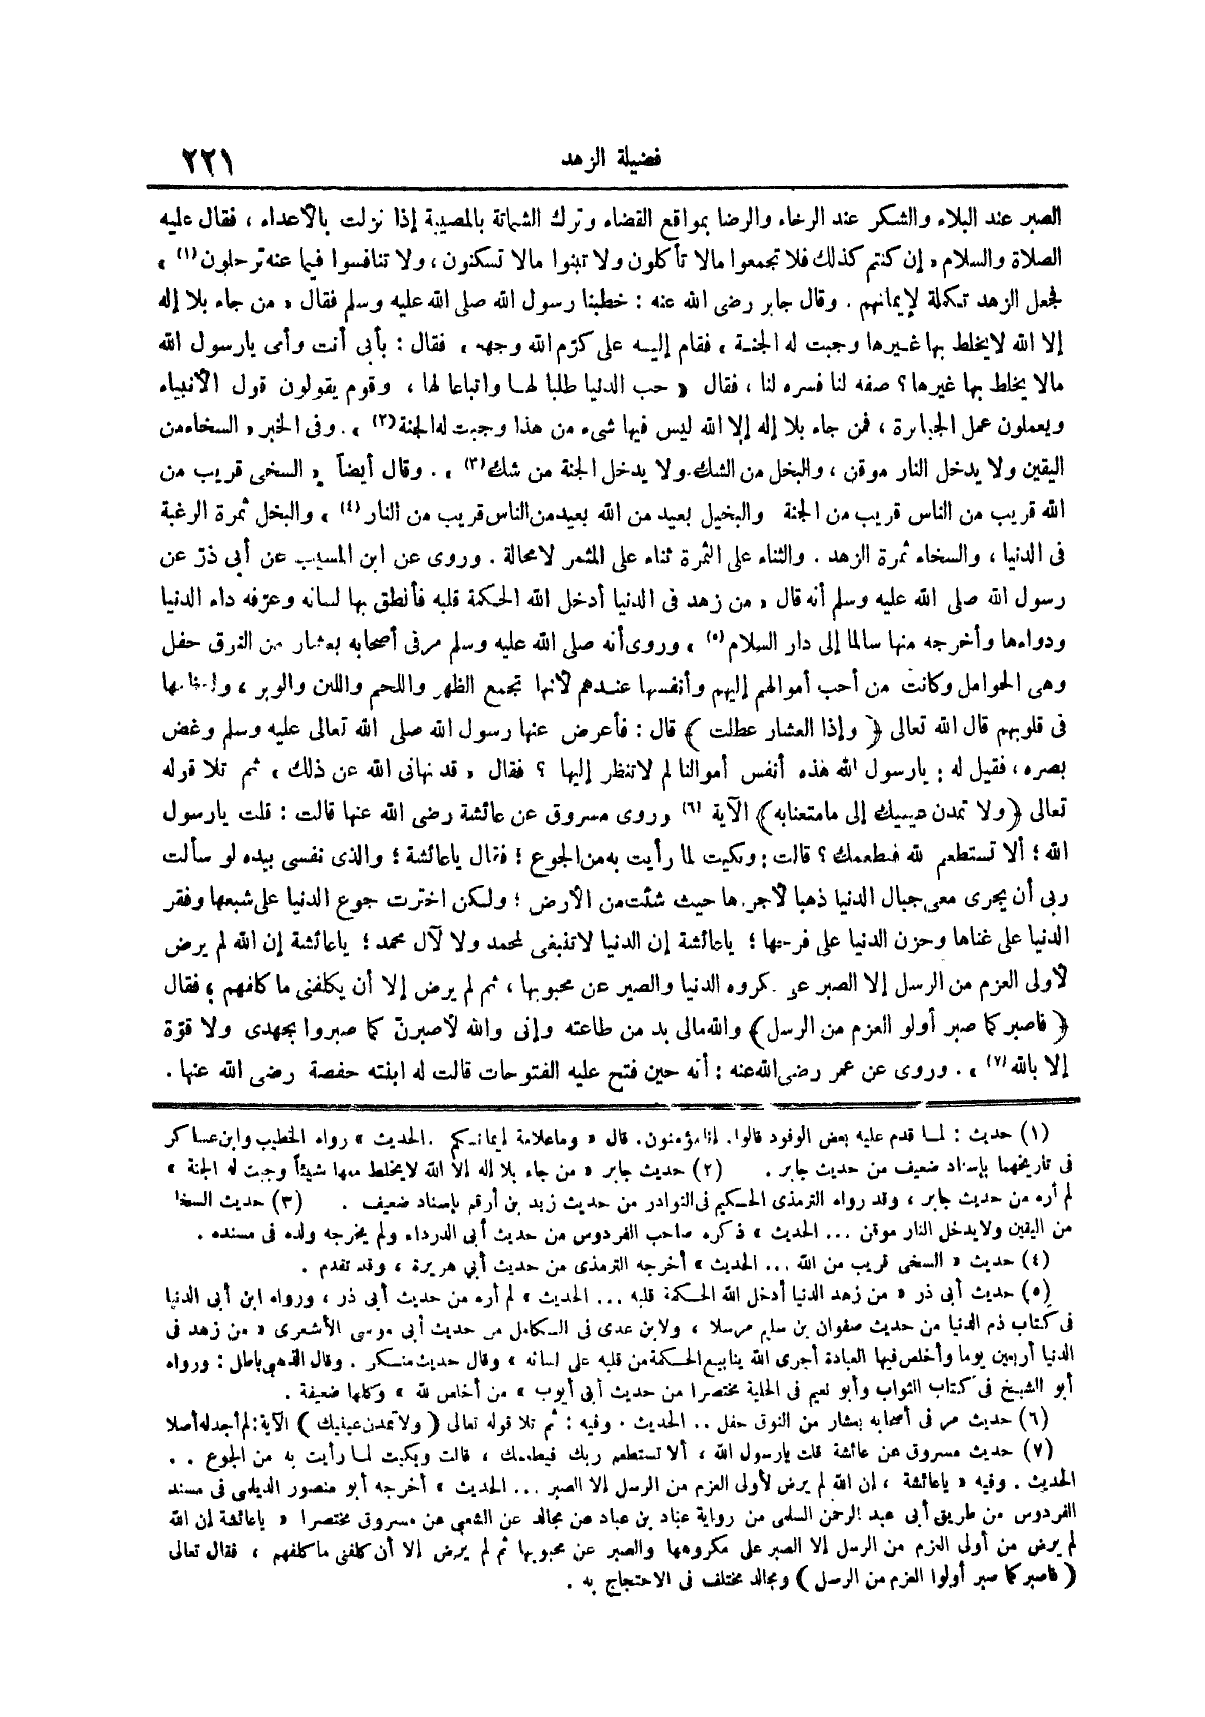 فضيلة الزهد ٢٢١
الصبر عند البلاء والشكر عند الرخاء والرضا بمواقع القضاء وترك الشماتة بالمصيبة إذا نزلت بالأعداء ، فقال عليه
الصلاة والسلام « إن كنتم كذلك فلا تجمعوا مالا تأكلون ولا تبنوا مالا تسكنون ، ولا تنافسوا فيما عنه ترحلون (١) »
فجعل الزهد تكملة لإيمانهم . وقال جابر رضى الله عنه : خطبنا رسول الله صلى الله عليه وسلم فقال « من جاء بلا إله
إلا الله لايخلط بها غيرها وجبت له الجنة » فقام إليه على كرّم الله وجهه ، فقال : بأبى أنت وأمى يارسول الله
مالا يخلط بها غيرها ؟ صفه لنا فسره لنا ، فقال « حب الدنيا طلبا لها واتباعا لها ، وقوم يقولون قول الأنبياء
ويعملون عمل الجبابرة ، فمن جاء بلا إله إلا الله ليس فيها شىء من هذا وجبت له الجنة (٢) » . وفى الخبر « السخاء من
اليقين ولا يدخل النار موقن ، والبخل من الشك ولا يدخل الجنة من شك (٣) » . وقال أيضاً « السخى قريب من
الله قريب من الناس قريب من الجنة والبخيل بعيد من الله بعيد من الناس قريب من النار (٤) » والبخل ثمرة الرغبة
فى الدنيا ، والسخاء ثمرة الزهد . والثناء على الثمرة ثناء على المثمر لامحالة . وروى عن ابن المسيب عن أبى ذرّ عن
رسول الله صلى الله عليه وسلم أنه قال « من زهد فى الدنيا أدخل الله الحكمة قلبه فأنطق بها لسانه وعرّفه داء الدنيا
ودواءها وأخرجه منها سالما إلى دار السلام (٥) » وروى أنه صلى الله عليه وسلم مر فى أصحابه بعشار من النوق حفل
وهى الحوامل وكانت من أحب أموالهم إليهم وأنفسها عندهم لأنها تجمع الظهر واللحم واللبن والوبر ، ولعظمها
فى قلوبهم قال الله تعالى ﴿ وإذا العشار عطلت ﴾ قال : فأعرض عنها رسول الله صلى الله تعالى عليه وسلم وغض
بصره ، فقيل له : يارسول الله هذه أنفس أموالنا لم لاتنظر إليها ؟ فقال « قد نهانى الله عن ذلك » ثم تلا قوله
تعالى ﴿ ولا تمدن عينيك إلى مامتعنا به ﴾ الآية (٦) وروى مسروق عن عائشة رضى الله عنها قالت : قلت يارسول
الله ؛ ألا تستطعم الله فيطعمك ؟ قالت : وبكيت لما رأيت به من الجوع ؛ فقال ياعائشة ؛ والذى نفسى بيده لو سألت
ربى أن يجرى معى جبال الدنيا ذهبا لأجراها حيث شئت من الأرض ؛ ولكن اخترت جوع الدنيا على شبعها وفقر
الدنيا على غناها وحزن الدنيا على فرحها ؛ ياعائشة إن الدنيا لاتنبغى لمحمد ولا لآل محمد ؛ ياعائشة إن الله لم يرض
لأولى العزم من الرسل إلا الصبر على مكروه الدنيا والصبر عن محبوبها ، ثم لم يرض إلا أن يكلفنى ما كلفهم ؛ فقال
﴿ فاصبر كما صبر أولو العزم من الرسل ﴾ والله مالى بد من طاعته وإنى والله لأصبرنّ كما صبروا بجهدى ولا قوّة
إلا بالله (٧) » . وروى عن عمر رضى الله عنه : أنه حين فتح عليه الفتوحات قالت له ابنته حفصة رضى الله عنها .
(١) حديث : لما قدم عليه بعض الوفود قالوا. إنا مؤمنون. قال « وماعلامة إيمانكم .. الحديث » رواه الخطيب وابن عساكر
فى تاريخهما بإسناد ضعيف من حديث جابر . (٢) حديث جابر « من جاء بلا إله إلا الله لايخلط معها شيئاً وجبت له الجنة »
لم أره من حديث جابر ، وقد رواه الترمذى الحكيم فى النوادر من حديث زيد بن أرقم بإسناد ضعيف . (٣) حديث السخا
من اليقين ولايدخل النار موقن ... الحديث » ذكره صاحب الفردوس من حديث أبى الدرداء ولم يخرجه ولده فى مسنده .
(٤) حديث « السخى قريب من الله ... الحديث » أخرجه الترمذى من حديث أبي هريرة ، وقد تقدم .
(٥) حديث أبى ذر « من زهد الدنيا أدخل الله الحكمة قلبه ... الحديث » لم أره من حديث أبى ذر ، ورواه ابن أبى الدنيا
فى كتاب ذم الدنيا من حديث صفوان بن سليم مرسلا ، ولابن عدى فى الكامل من حديث أبى موسى الأشعرى « من زهد فى
الدنيا أربعين يوما وأخلص فيها العبادة أجرى الله ينابيع الحكمة من قلبه على لسانه » وقال حديث منكر . وقال الذهبى باطل : ورواه
أبو الشيخ فى كتاب الثواب وأبو نعيم فى الحلية مختصرا من حديث أبى أيوب « من أخلص لله » وكلها ضعيفة .
(٦) حديث مر فى أصحابه بعشار من النوق حفل .. الحديث . وفيه : ثم تلا قوله تعالى ( ولا تمدن عينيك ) الآية: لم أجد له أصلا
(٧) حديث مسروق عن عائشة قلت يارسول الله ، ألا تستطعم ربك فيطعمك ، قالت وبكيت لما رأيت به من الجوع . .
الحديث . وفيه « ياعائشة ، إن الله لم يرض لأولى العزم من الرسل إلا الصبر ... الحديث » أخرجه أبو منصور الديلمى فى مسند
الفردوس من طريق أبى عبد الرحمن السلمى من رواية عباد بن عباد عن مجالد عن الشعبى عن مسروق مختصرا « ياعائشة إن الله
لم يرض من أولى العزم من الرسل إلا الصبر على مكروهها والصبر عن محبوبها ثم لم يرض إلا أن كلفنى ما كلفهم ، فقال تعالى
( فاصبر كما صبر أولوا العزم من الرسل ) ومجالد مختلف فى الاحتجاج به .